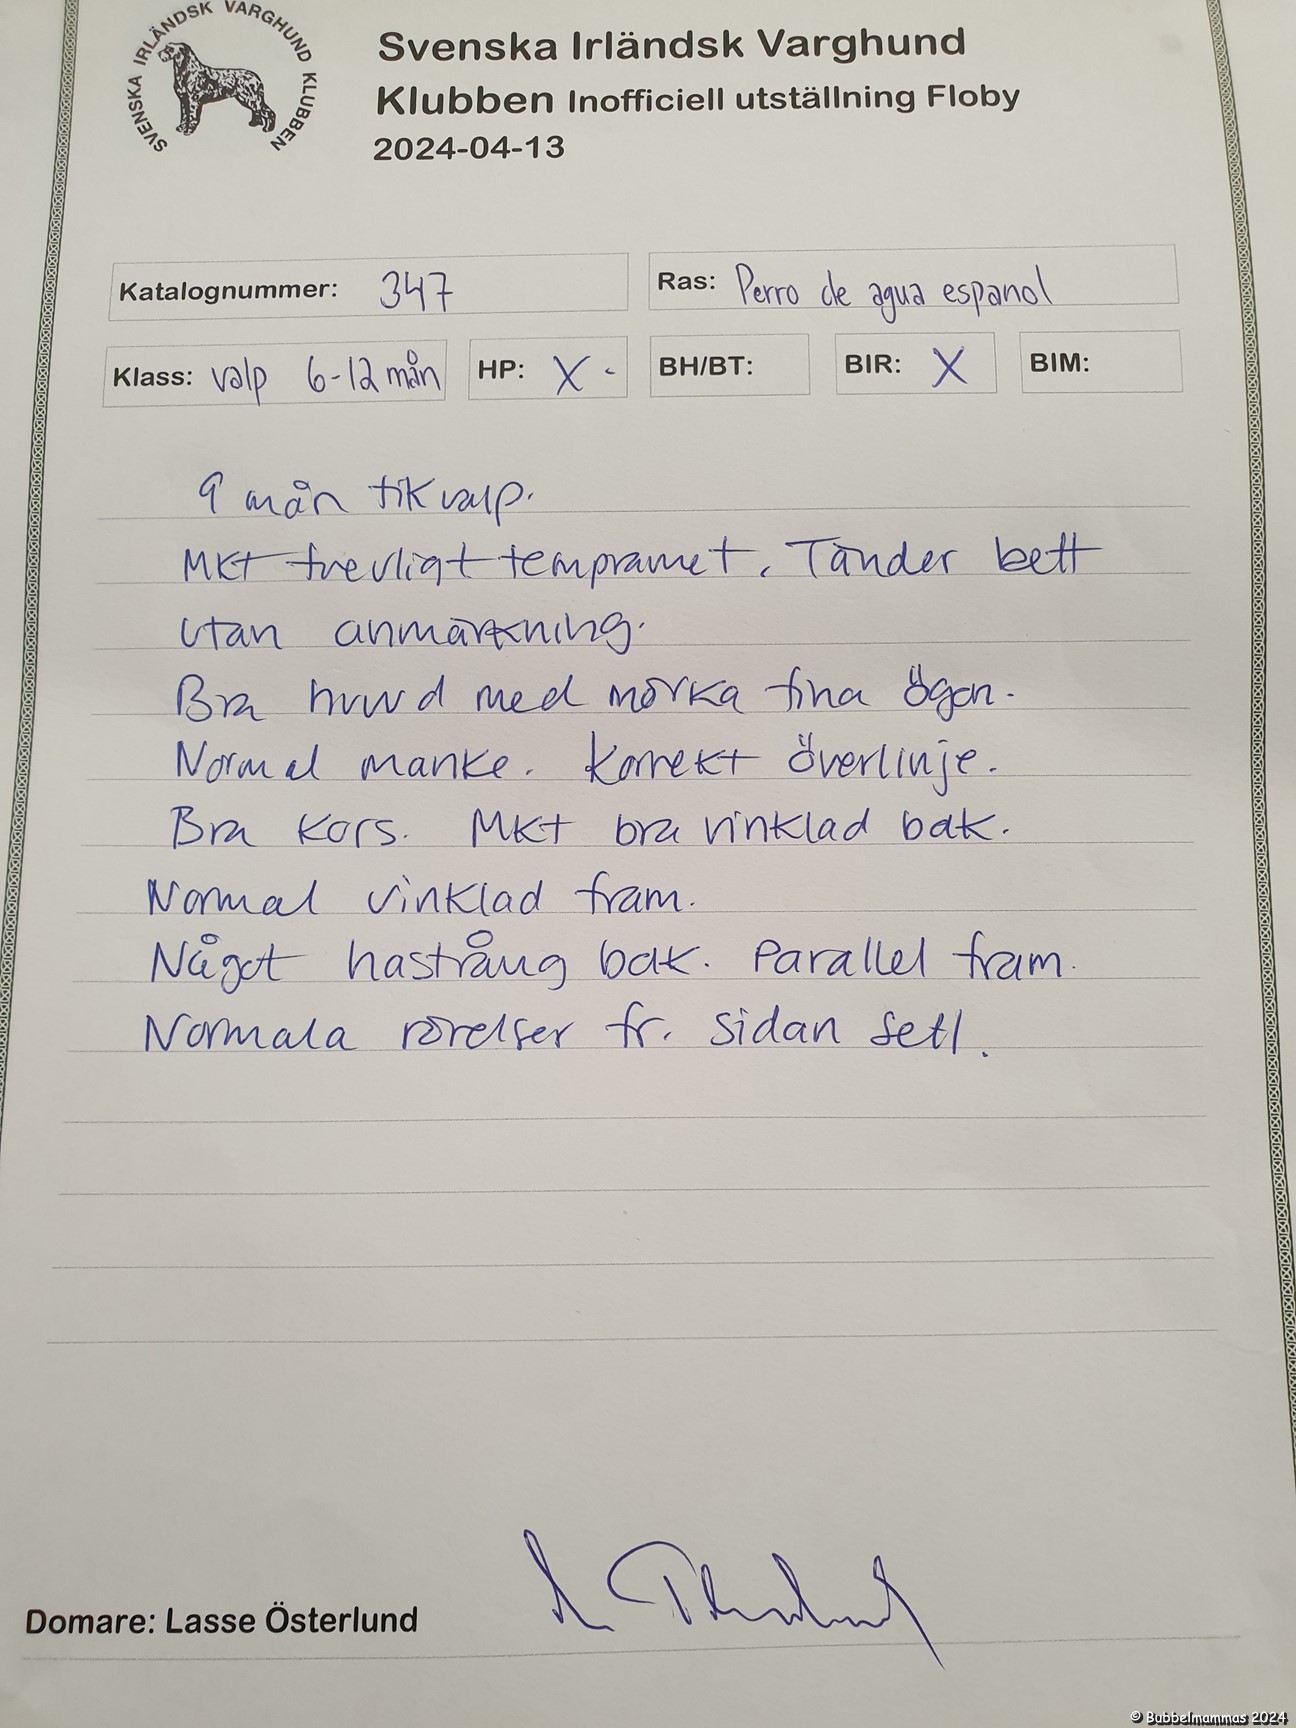 SVENSKA IRLÄNDSK VARGHUND KLUBBEN
Svenska Irländsk Varghund
Klubben Inofficiell utställning Floby
2024-04-13
Katalognummer: 347
Ras: Perro de agua espanol
Klass: valp 6-12 mån
HP: X -
BH/BT:
BIR: X
BIM:
9 mån tikvalp.
Mkt trevligt tempramet. Tänder bett
utan anmärkning.
Bra huvud med mörka fina ögon.
Normal manke. Korrekt överlinje.
Bra kors. Mkt bra vinklad bak.
Normal vinklad fram.
Något hastrång bak. Parallel fram.
Normala rörelser fr. sidan sett.
Domare: Lasse Österlund
© Bubbelmammas 2024